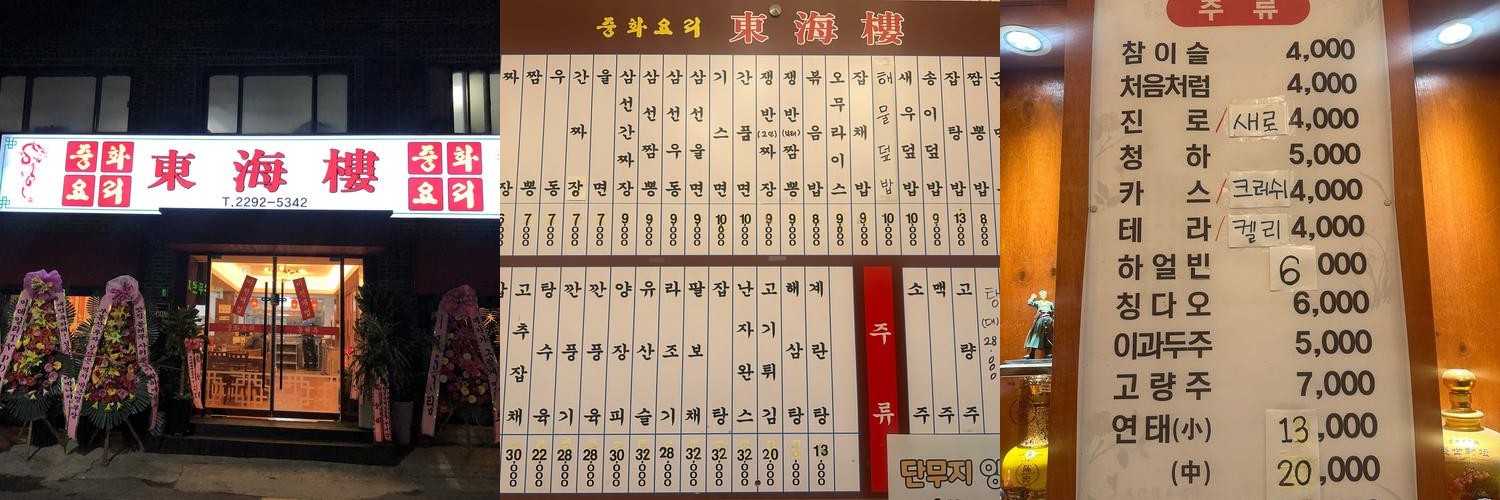 중화
요리
東海樓
중화
요리
T.2292-5342
중화요리 東海樓
짬뽕 7000
우동 7000
간짜장 7000
울면 7000
삼선간짜장 9000
삼선짬뽕 9000
삼선우동 9000
삼선울면 9000
기스면 10000
간품면 10000
쟁반짜장 (2인) 9000
쟁반짬뽕 9000
볶음밥 8000
오무라이스 9000
잡채밥 9000
해물덮밥 10000
새우덮밥 10000
송이덮밥 9000
잡탕밥 13000
짬뽕밥 8000
고추잡채 30000
탕수육 22000
깐풍기 28000
깐풍육 28000
양장피 30000
유산슬 32000
라조기 28000
팔보채 32000
잡탕 32000
난자완스 32000
고기튀김 20000
해삼탕
계란탕 13000
주류
소주
맥주
고량주
단무지
주류
참이슬 4,000
처음처럼 4,000
진로/새로 4,000
청하 5,000
카스/크러쉬 4,000
테라/켈리 4,000
하얼빈 6,000
칭다오 6,000
이과두주 5,000
고량주 7,000
연태(小) 13,000
(中) 20,000